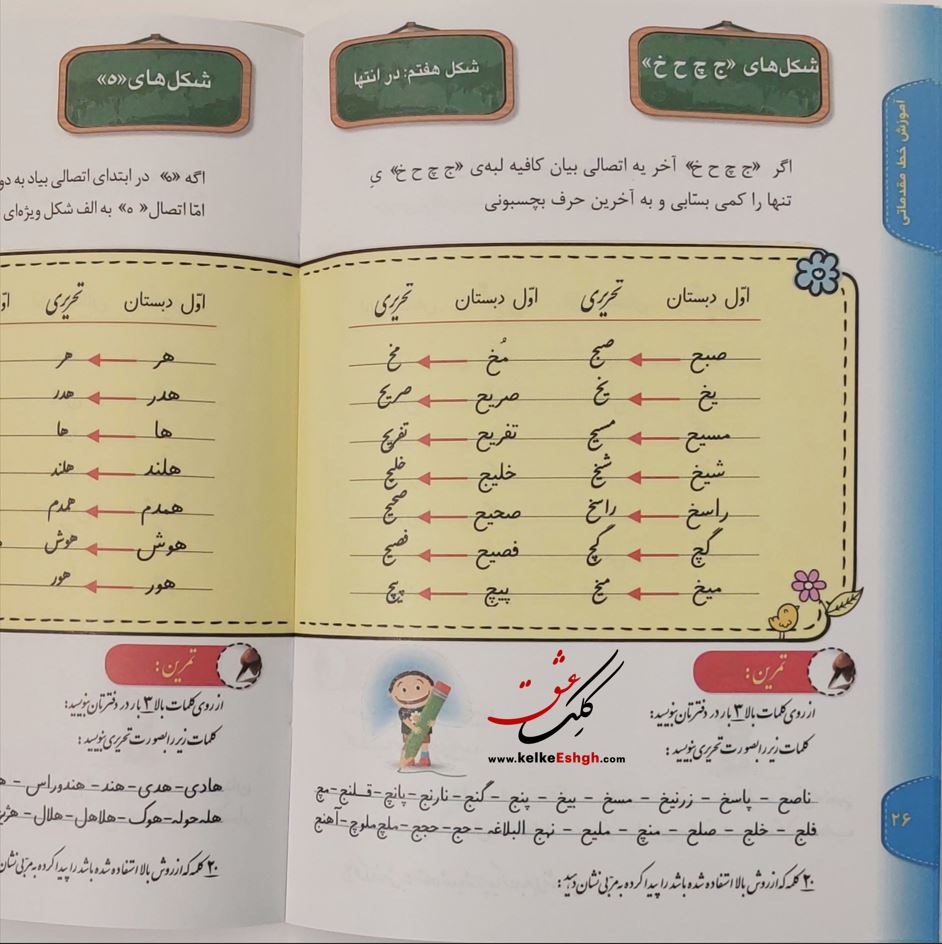 آموزش خط مقدماتی
شکل‌های «ج چ ح خ»
شکل هفتم: در انتها
اگر «ج چ ح خ» آخر یه اتصالی بیان کافیه لبه‌ی «ج چ ح خ» یِ
تنها را کمی بستابی و به آخرین حرف بچسبونی
اوّل دبستان تحریری اوّل دبستان تحریری
صبح صبح مُخ مخ
یخ یخ صریح صریح
مسیح مسیح تفریح تفریح
شیخ شیخ خلیج خلیج
راسخ راسخ صحیح صحیح
گچ گچ فصیح فصیح
میخ میخ پیچ پیچ
تمرین:
از روی کلمات بالا ۳ بار در دفترتان بنویسید:
کلمات زیر را بصورت تحریری بنویسید:
www.kelkeEshgh.com
کلک عشق
ناصح - پاسخ - زرنیخ - مسخ - بیخ - پنج - گنج - نارنج - پانچ - قلنج - مچ
فلج - خلج - صلح - منچ - ملیح - نهج البلاغه - حج - حجج - ملچ ملوچ - آهنج
۲۰ کلمه که از روش بالا استفاده شده باشد را پیدا کرده به مربّی نشان دهید:
۲۶
شکل‌های «ه»
اگه «ه» در ابتدای اتصالی بیاد به دو
امّا اتصال «ه» به الف شکل ویژه‌ای
اوّل دبستان تحریری
هر هر
هدر هدر
ها ها
هلند هلند
همدم همدم
هوش هوش
هور هور
تمرین:
از روی کلمات بالا ۳ بار در دفترتان بنویسید:
کلمات زیر را بصورت تحریری بنویسید:
هادی - هدی - هند - هندوراس -
هله حوله - هوک - هلاهل - هلال -
۲۰ کلمه که از روش بالا استفاده شده باشد را پیدا کرده به مربّی نشان